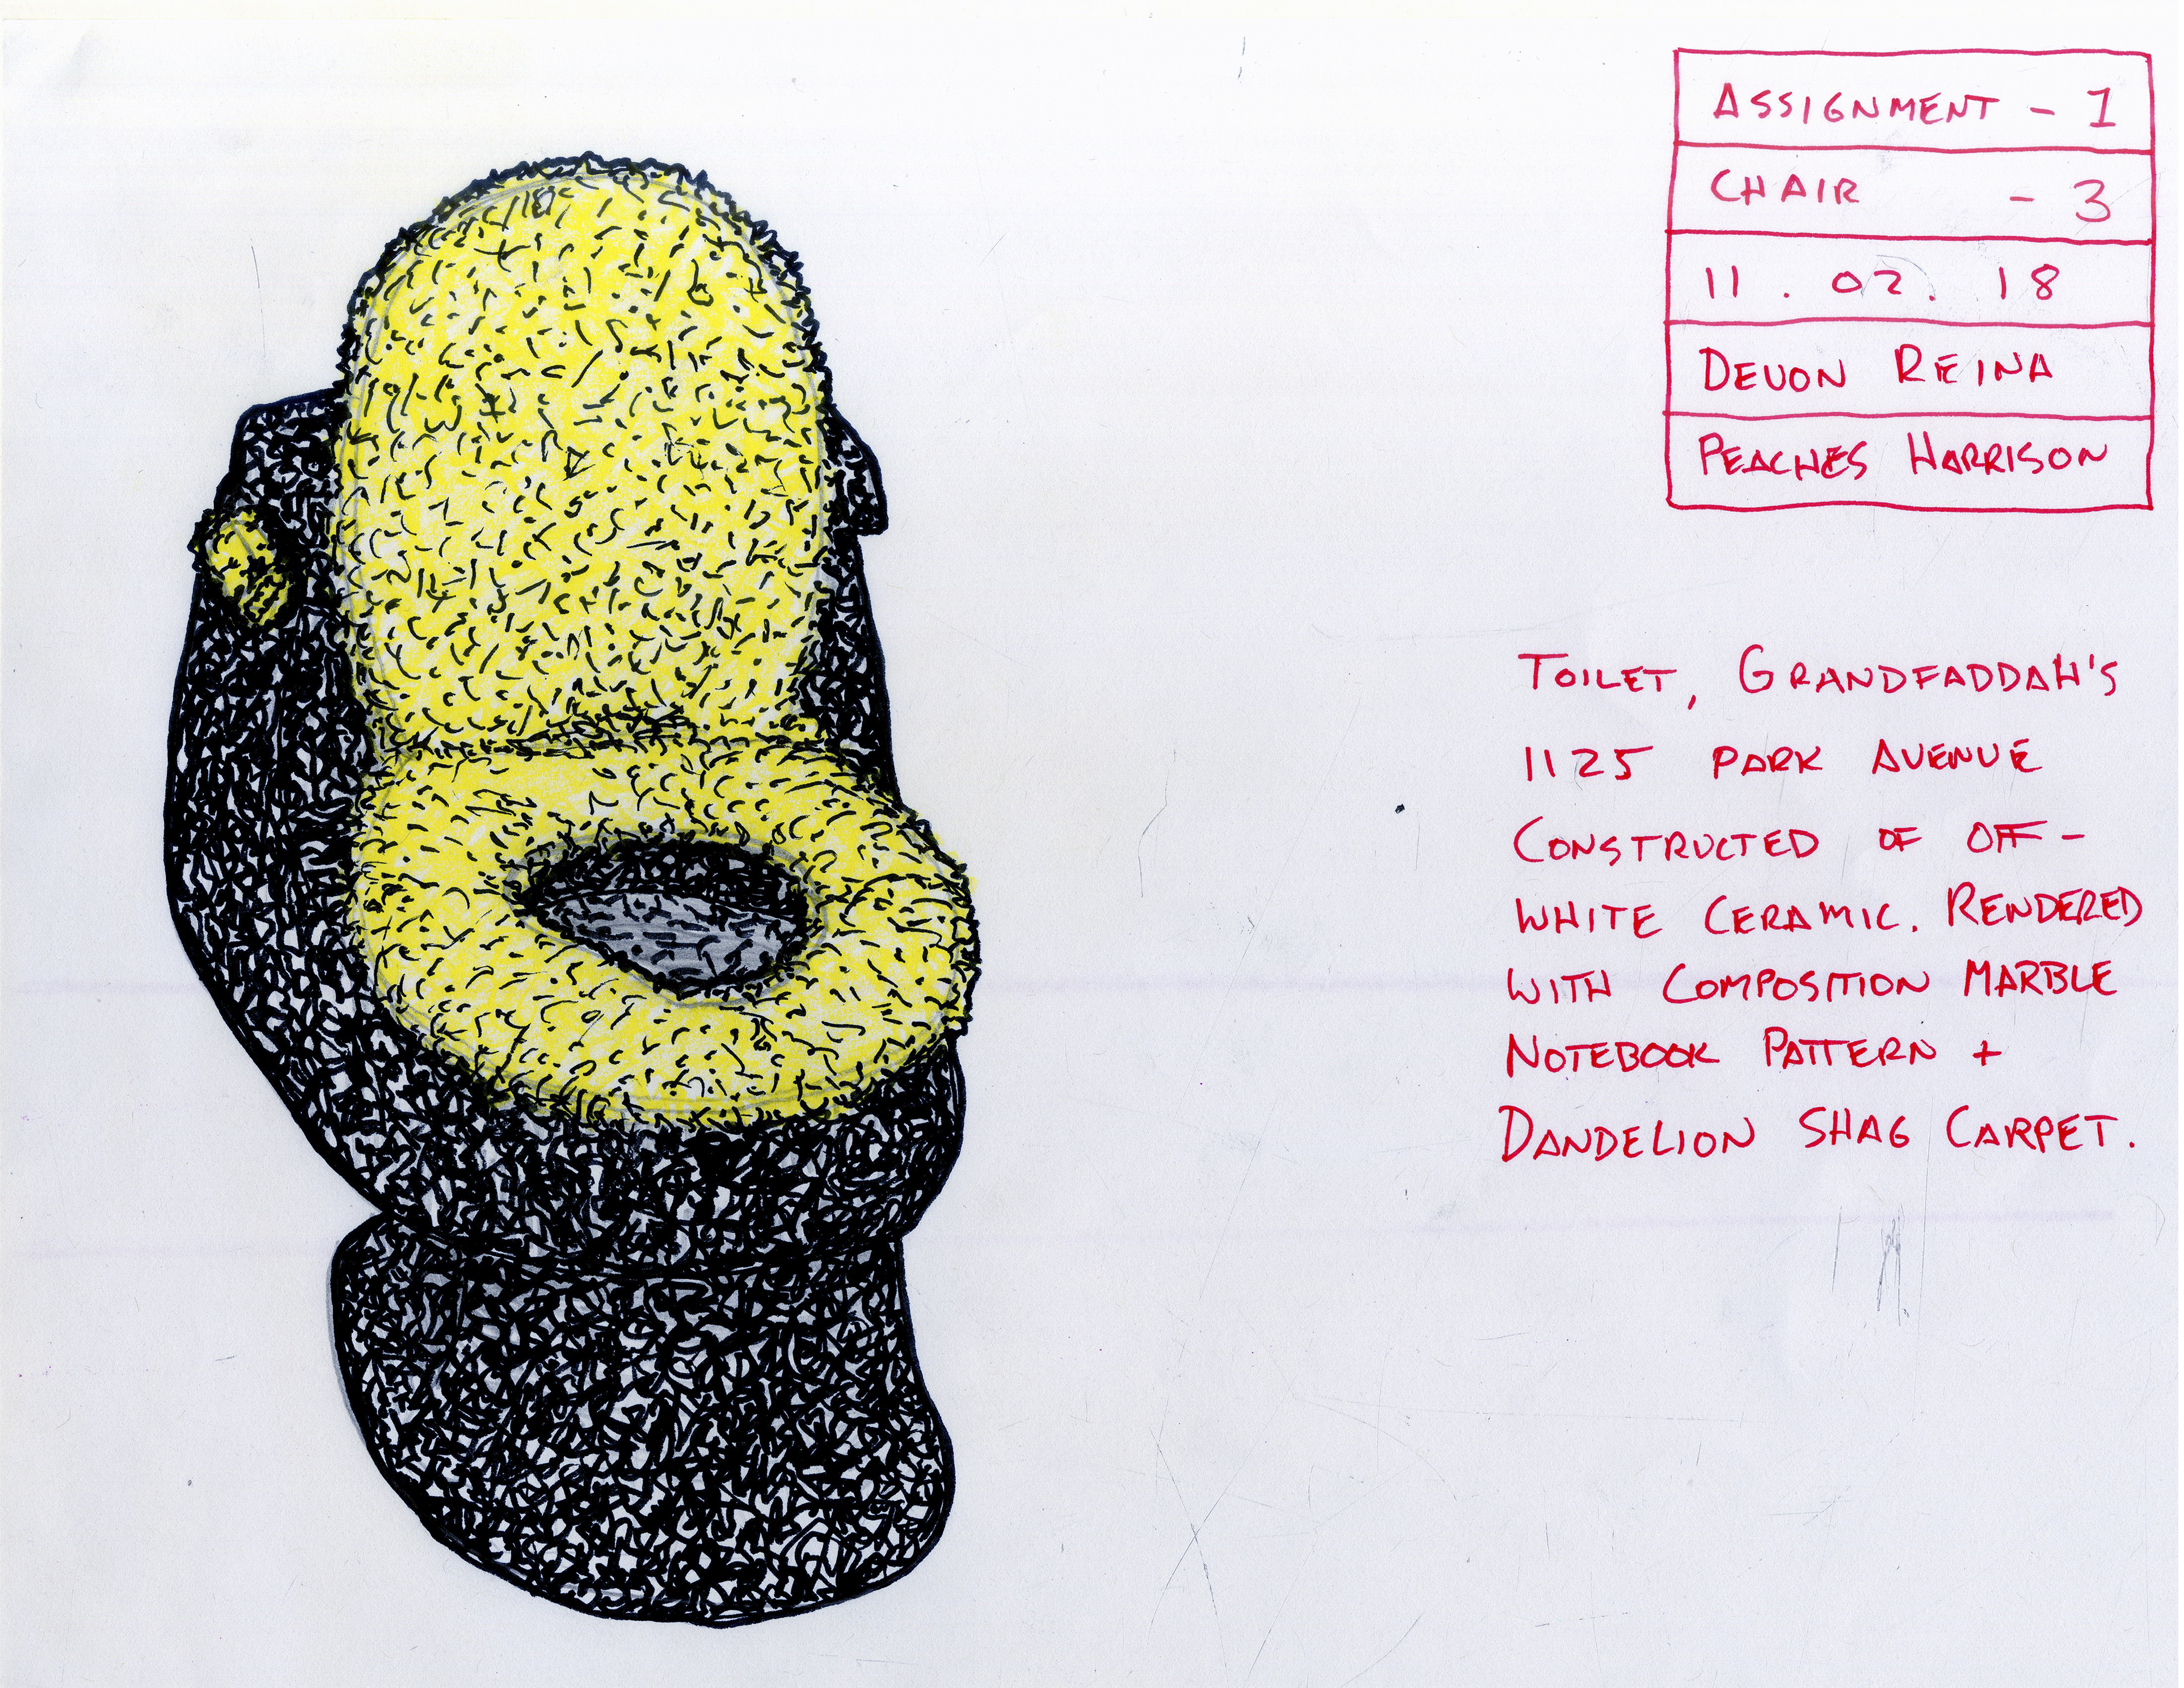 ASSIGNMENT - 1
CHAIR - 3
11 . 02 . 18
DEVON REINA
PEACHES HARRISON
TOILET, GRANDFADDAH'S
1125 PARK AVENUE
CONSTRUCTED OF OFF-
WHITE CERAMIC. RENDERED
WITH COMPOSITION MARBLE
NOTEBOOK PATTERN +
DANDELION SHAG CARPET.